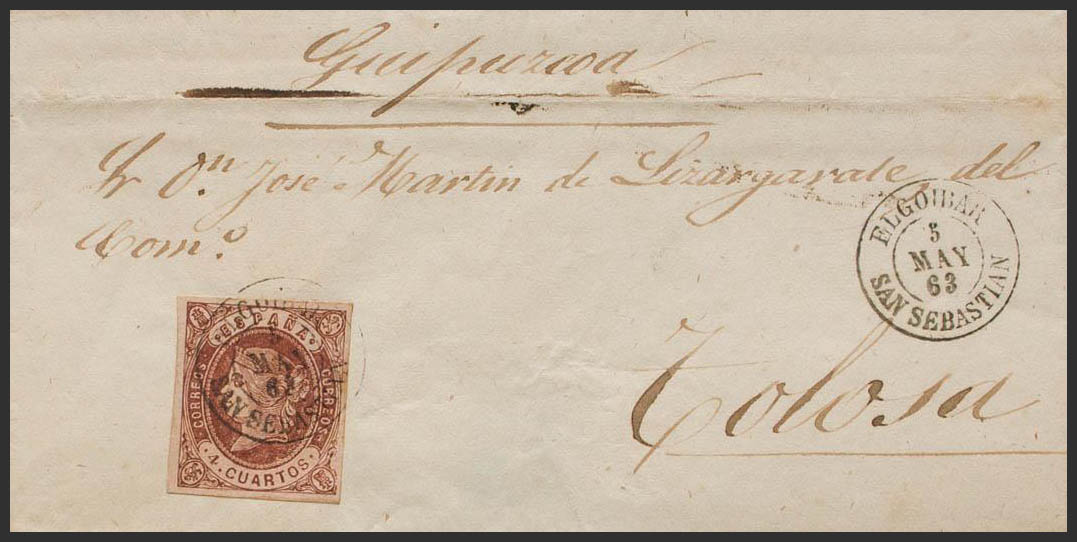 Guipuzcoa
Sr Dn. José Martin de Lizargarate del
Como.
ELGOIBAR
5
MAY
63
SAN SEBASTIAN
ESPAÑA
CORREOS CORREOS
4 CUARTOS
MAY
63
SAN SEBAS
Tolosa